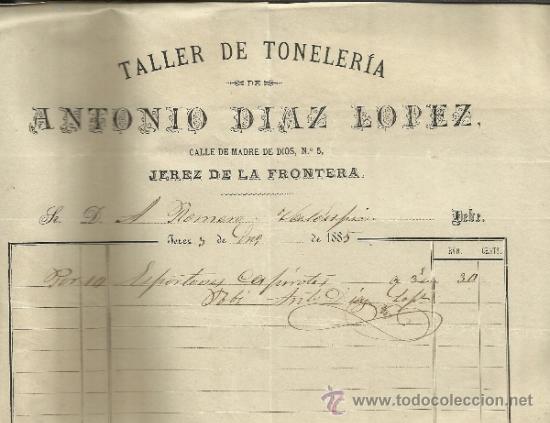 TALLER DE TONELERÍA
DE
ANTONIO DIAZ LOPEZ.
CALLE DE MADRE DE DIOS, N.º 5,
JEREZ DE LA FRONTERA.
Sr. D. A Romero Debe.
Jerez 3 de de 1885
RVN. CENTS.
Por 10 Esportones a 3 30
Recibi Anto Diaz Lopz
todocoleccion
www.todocoleccion.net